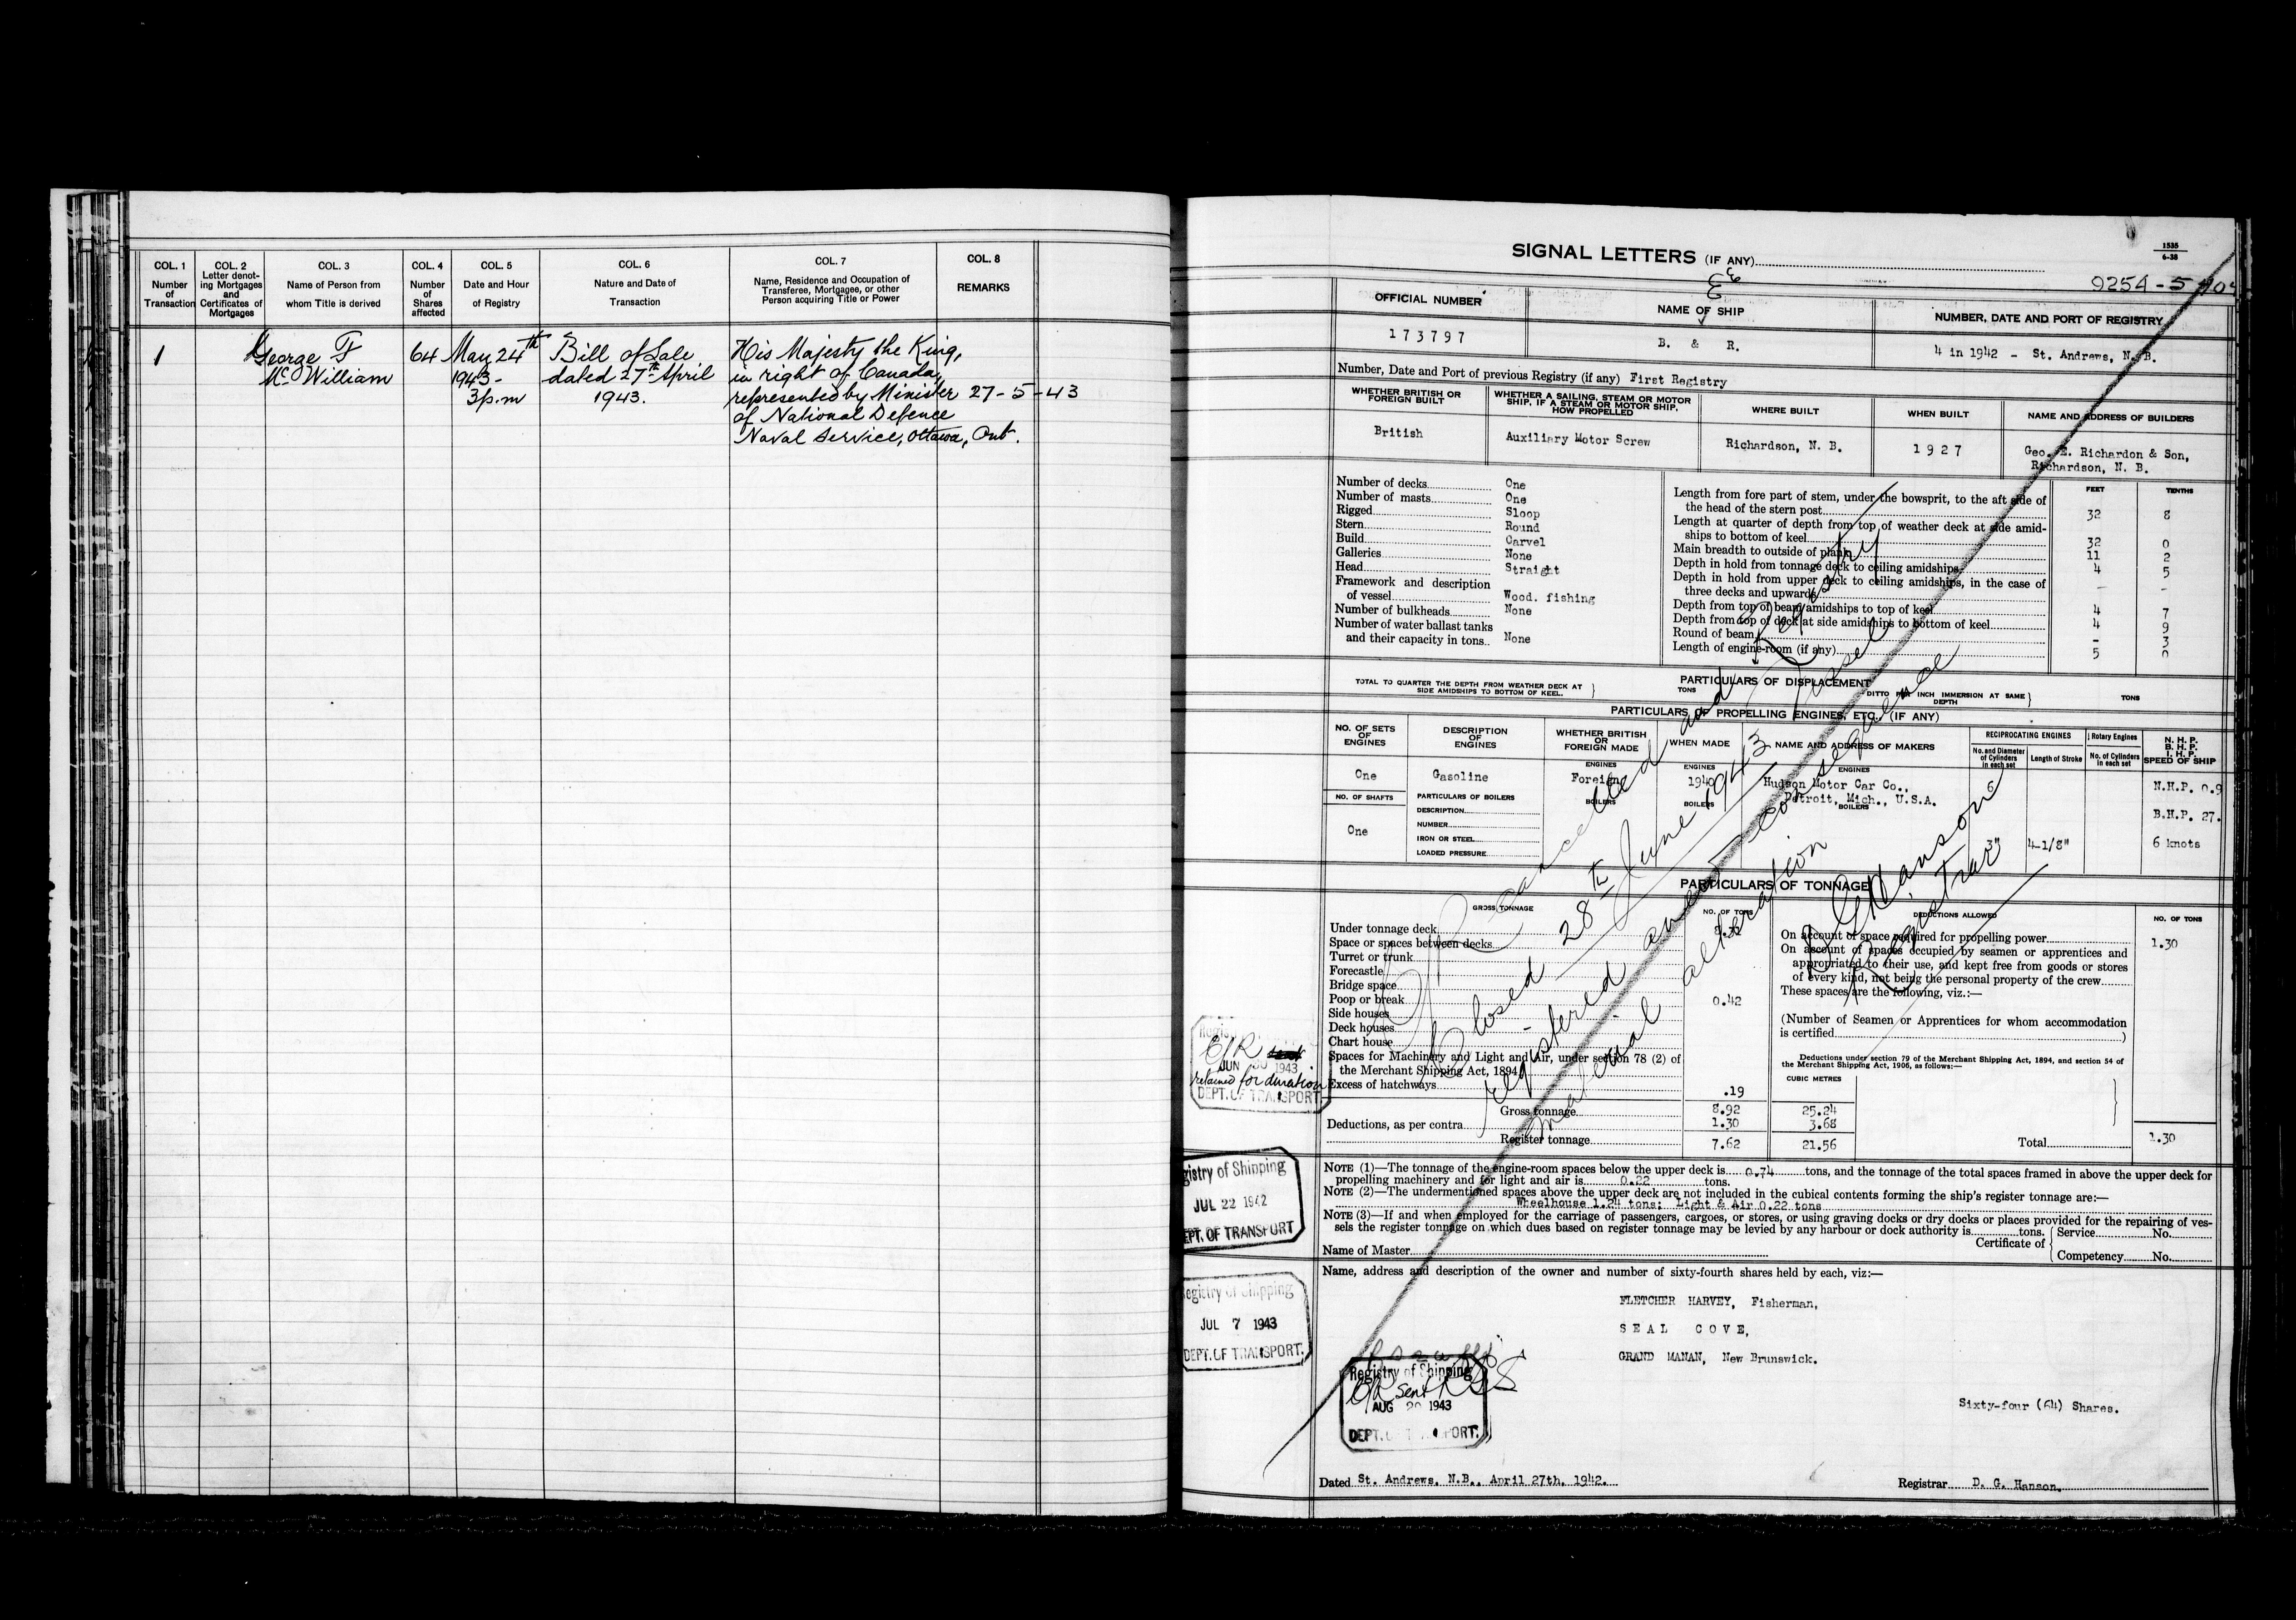 COL. 1
Number
of
Transaction
COL. 2
Letter denot-
ing Mortgages
and
Certificates of
Mortgages
COL. 3
Name of Person from
whom Title is derived
COL. 4
Number
of
Shares
affected
COL. 5
Date and Hour
of Registry
COL. 6
Nature and Date of
Transaction
COL. 7
Name, Residence and Occupation of
Transferee, Mortgagee, or other
Person acquiring Title or Power
COL. 8
REMARKS
1
George F
McWilliam
64
May 24th
1943-
3 p.m
Bill of Sale
dated 27th April
1943.
His Majesty the King,
in right of Canada,
represented by Minister
of National Defence
Naval Service, Ottawa, Ont.
27-5-43
SIGNAL LETTERS (IF ANY)
1535
6-38
9254-5
OFFICIAL NUMBER
173797
NAME OF SHIP
B. & R.
NUMBER, DATE AND PORT OF REGISTRY
4 in 1942 - St. Andrews, N. B.
Number, Date and Port of previous Registry (if any) First Registry
WHETHER BRITISH OR
FOREIGN BUILT
British
WHETHER A SAILING, STEAM OR MOTOR
SHIP, IF A STEAM OR MOTOR SHIP,
HOW PROPELLED
Auxiliary Motor Screw
WHERE BUILT
Richardson, N. B.
WHEN BUILT
1927
NAME AND ADDRESS OF BUILDERS
Geo. E. Richardon & Son,
Richardson, N. B.
Number of decks One
Number of masts One
Rigged Sloop
Stern Round
Build Carvel
Galleries None
Head Straight
Framework and description
of vessel Wood. fishing
Number of bulkheads None
Number of water ballast tanks
and their capacity in tons.. None
FEET TENTHS
Length from fore part of stem, under the bowsprit, to the aft side of
the head of the stern post 32 8
Length at quarter of depth from top of weather deck at side amid-
ships to bottom of keel 32 0
Main breadth to outside of plank 11 2
Depth in hold from tonnage deck to ceiling amidships 4 5
Depth in hold from upper deck to ceiling amidships, in the case of
three decks and upwards - -
Depth from top of beam amidships to top of keel 4 7
Depth from top of deck at side amidships to bottom of keel 4 9
Round of beam - 3
Length of engine-room (if any) 5 0
PARTICULARS OF DISPLACEMENT
TOTAL TO QUARTER THE DEPTH FROM WEATHER DECK AT
SIDE AMIDSHIPS TO BOTTOM OF KEEL.
TONS
DITTO PER INCH IMMERSION AT SAME
DEPTH
TONS
PARTICULARS OF PROPELLING ENGINES, ETC. (IF ANY)
NO. OF SETS
OF
ENGINES
One
NO. OF SHAFTS
One
DESCRIPTION
OF
ENGINES
Gasoline
PARTICULARS OF BOILERS
DESCRIPTION
NUMBER
IRON OR STEEL
LOADED PRESSURE
WHETHER BRITISH
OR
FOREIGN MADE
ENGINES
Foreign
BOILERS
WHEN MADE
ENGINES
1940
BOILERS
NAME AND ADDRESS OF MAKERS
ENGINES
Hudson Motor Car Co.,
Detroit, Mich., U.S.A.
BOILERS
RECIPROCATING ENGINES
No. and Diameter
of Cylinders
in each set
6
3"
Length of Stroke
4-1/8"
Rotary Engines
No. of Cylinders
in each set
N. H. P.
B. H. P.
I. H. P.
SPEED OF SHIP
N.H.P. 0.9
B.H.P. 27.
6 knots
PARTICULARS OF TONNAGE
GROSS TONNAGE
NO. OF TONS
Under tonnage deck
Space or spaces between decks
Turret or trunk
Forecastle
Bridge space
Poop or break 0.42
Side houses
Deck houses
Chart house
Spaces for Machinery and Light and Air, under section 78 (2) of
the Merchant Shipping Act, 1894
Excess of hatchways .19
Gross tonnage 8.92 25.24
Deductions, as per contra 1.30 3.68
Register tonnage 7.62 21.56
CUBIC METRES
DEDUCTIONS ALLOWED
NO. OF TONS
On account of space required for propelling power 1.30
On account of spaces occupied by seamen or apprentices and
appropriated to their use, and kept free from goods or stores
of every kind, not being the personal property of the crew
These spaces are the following, viz.:—
(Number of Seamen or Apprentices for whom accommodation
is certified )
Deductions under section 79 of the Merchant Shipping Act, 1894, and section 54 of
the Merchant Shipping Act, 1906, as follows:—
Total 1.30
NOTE (1)—The tonnage of the engine-room spaces below the upper deck is 0.74 tons, and the tonnage of the total spaces framed in above the upper deck for
propelling machinery and for light and air is 0.22 tons.
NOTE (2)—The undermentioned spaces above the upper deck are not included in the cubical contents forming the ship's register tonnage are:—
Wheelhouse 1.24 tons: Light & Air 0.22 tons
NOTE (3)—If and when employed for the carriage of passengers, cargoes, or stores, or using graving docks or dry docks or places provided for the repairing of ves-
sels the register tonnage on which dues based on register tonnage may be levied by any harbour or dock authority is tons.
Name of Master
Certificate of
Service No.
Competency No.
Name, address and description of the owner and number of sixty-fourth shares held by each, viz:—
FLETCHER HARVEY, Fisherman,
SEAL COVE,
GRAND MANAN, New Brunswick.
Sixty-four (64) Shares.
Dated St. Andrews, N.B., April 27th, 1942.
Registrar D. G. Hanson.
C/R cancelled and Registry
Closed 28th June 1943 Vessel
registered anew consequence
material alteration
D G Hanson
Registrar
C/R
JUN 30 1943
retained for duration
DEPT. OF TRANSPORT
Registry of Shipping
JUL 22 1942
DEPT. OF TRANSPORT
Registry of Shipping
JUL 7 1943
DEPT. OF TRANSPORT.
Registry of Shipping
C/R sent
AUG 20 1943
DEPT. OF TRANSPORT.